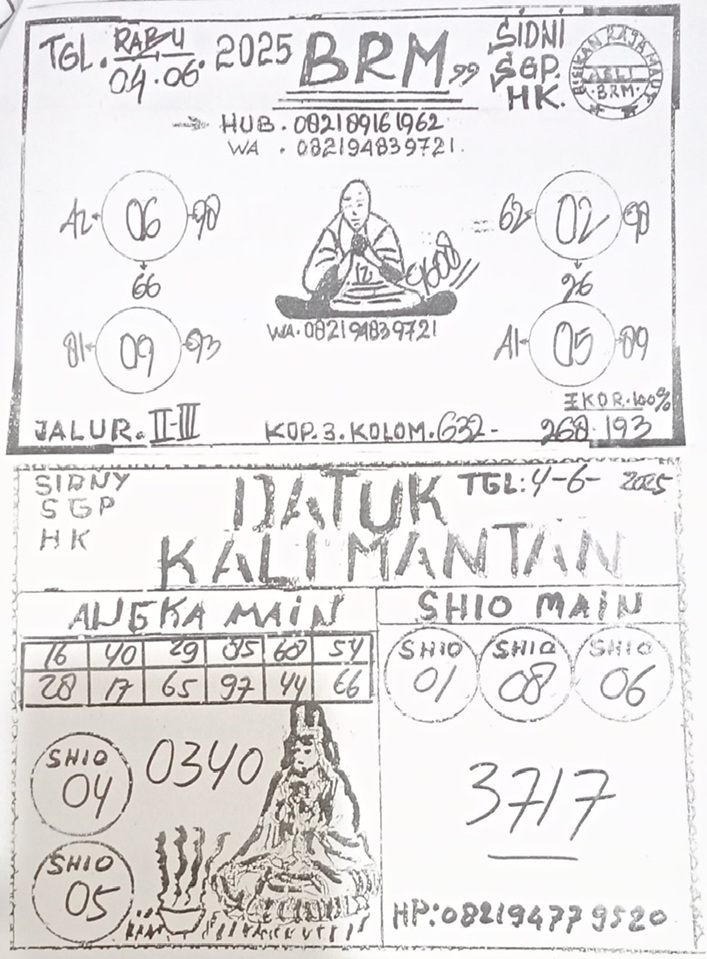 TGL. RABU 04.06. 2025 BRM 99 SIDNI
SGP.
HK.
BISIKAN RAJA MALIK
ASLI
BRM
HUB. 082189161962
WA. 082194839721.
A2 06 90
66
62 02 90
26
12 9608
WA. 082194839721
81 09 93
A1 05 89
EKOR. 100%
JALUR. II-III KOP. 3. KOLOM. 632- 268. 193
SIDNY
SGP
HK
DATUK
KALIMANTAN
TGL: 4-6- 2025
ANGKA MAIN
16 40 29 95 60 54
28 17 65 97 44 66
SHIO 04
0340
SHIO 05
SHIO MAIN
SHIO 01 SHIO 08 SHIO 06
3717
HP: 082194779520